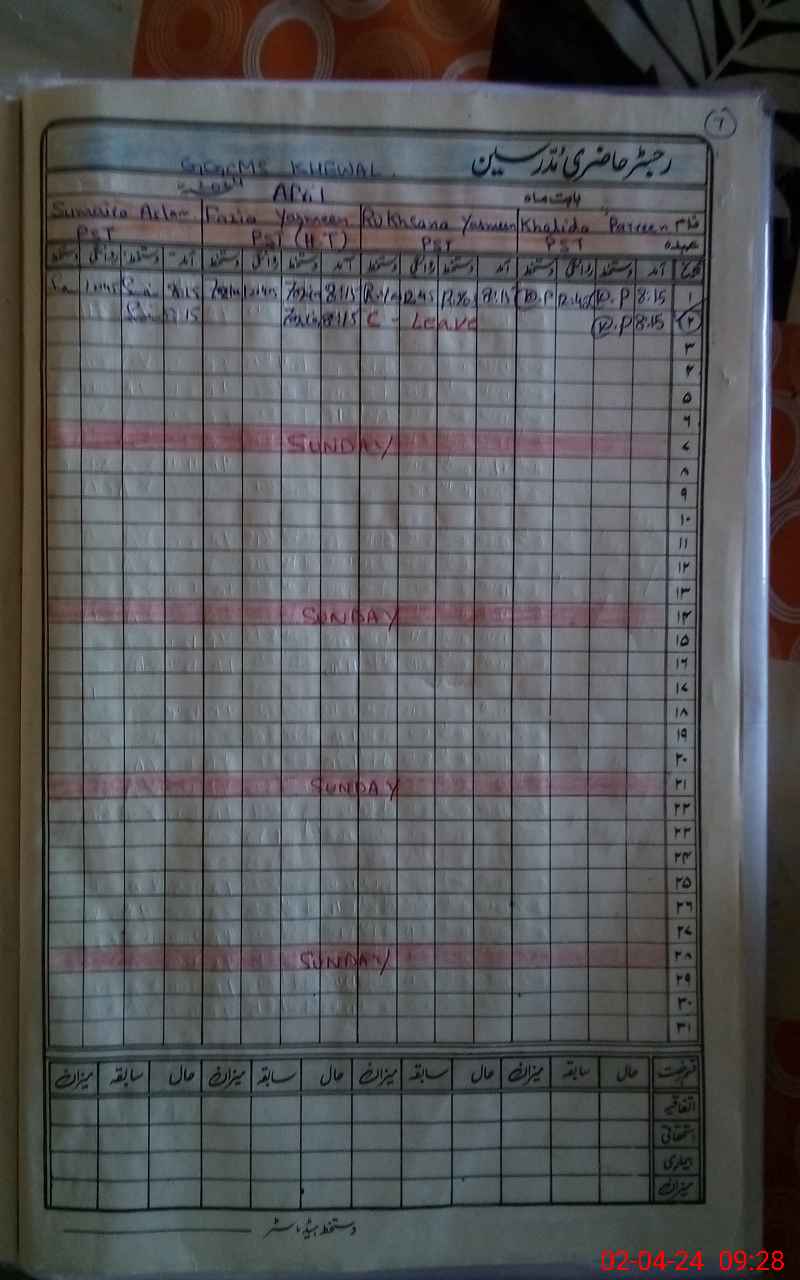 رجسٹر حاضری مدرسین
KHEWAL
بابت ماہ April
نام Khalida Parveen Rukhsana Yasmeen Fazia Yasmeen Sumaira
عہدہ PST PST PST (H.T) PST
تاریخ آمد دستخط روانگی دستخط آمد دستخط روانگی دستخط آمد دستخط روانگی دستخط آمد دستخط روانگی دستخط
۱ 8:15 K.P 12:45 K.P 8:15 12:45 8:15 12:45 8:15 12:45
۲ 8:15 K.P C - Leave 8:15 8:15
۳
۴
۵
۶
۷ SUNDAY
۸
۹
۱۰
۱۱
۱۲
۱۳
۱۴ SUNDAY
۱۵
۱۶
۱۷
۱۸
۱۹
۲۰
۲۱ SUNDAY
۲۲
۲۳
۲۴
۲۵
۲۶
۲۷
۲۸ SUNDAY
۲۹
۳۰
۳۱
رخصت حال سابقہ میزان حال سابقہ میزان حال سابقہ میزان حال سابقہ میزان
اتفاقیہ
استحقاقی
بیماری
میزان
دستخط ہیڈماسٹر
02-04-24 09:28